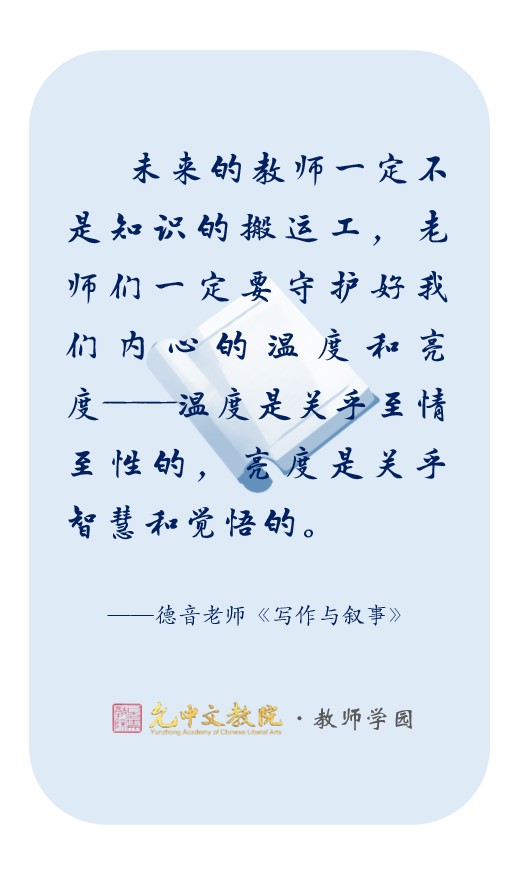 未来的教师一定不
是知识的搬运工，老
师们一定要守护好我
们内心的温度和亮
度——温度是关乎至情
至性的，亮度是关乎
智慧和觉悟的。
——德音老师《写作与叙事》
允中文教院·教师学园
Yunzhong Academy of Chinese Liberal Arts